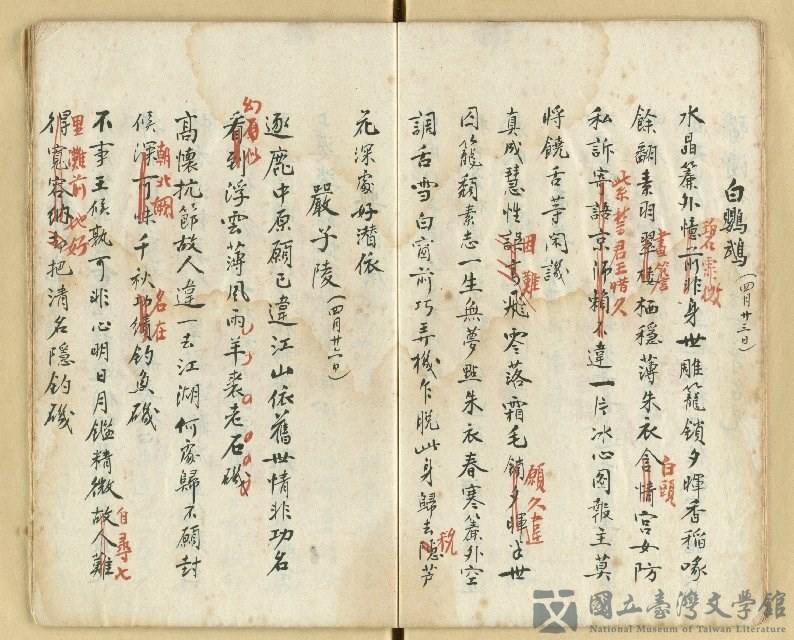 白鸚鵡(四月廿三日)
水晶簾外憶前非身世雕籠鎖夕暉香稻啄
碧霏微
餘翻素羽翠樓栖穩薄朱衣含情宮女防
畫簷
白頭
私訴寄語京師賴不違一片冰心圖報主莫
紫誓君王惜久
將饒舌等閑譏
真成慧性誤高飛零落霜毛鎖夕暉半世
因難
願久違
囚籠類素志一生無夢點朱衣春寒簾外空
調舌雪白窗前巧弄機乍脫此身歸去隱芦
稅
花深處好潛依
嚴子陵(四月廿二日)
逐鹿中原願已違江山依舊世情非功名
看到浮雲薄風雨羊裘老石磯
幻看似
高懷抗節故人違一去江湖何處歸不願封
候深可性千秋功績釣魚磯
朝北闕
名在
不事王候孰可非心明日月鑑精微故人難
自尋七
得寬容納却把清名隱釣磯
里難前地好
國立臺灣文學館
National Museum of Taiwan Literature